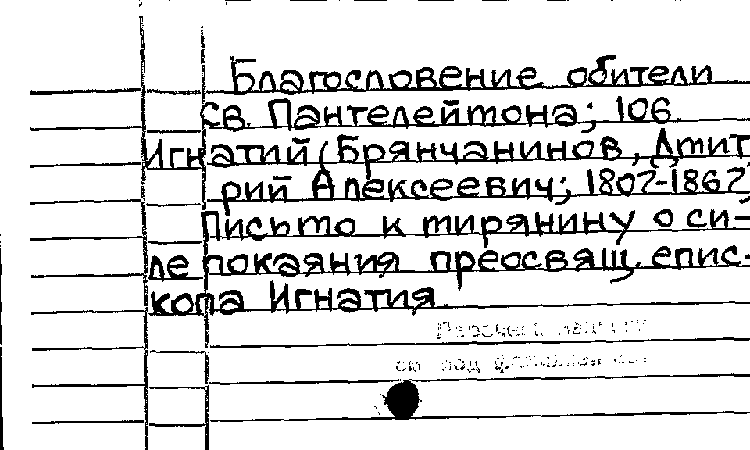 Благословение обители
св. Пантелеймона; 106.
Игнатий (Брянчанинов, Дмит
рий Алексеевич; 1807-1867)
Письмо к мирянину о си-
ле покаяния преосвящ. епис-
копа Игнатия.